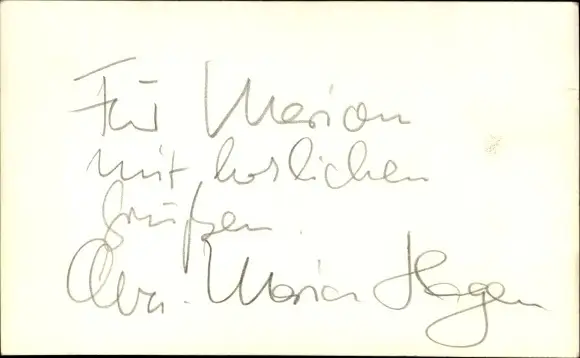 Für Marion
mit herzlichen
Grüßen.
Eva-Maria Hagen